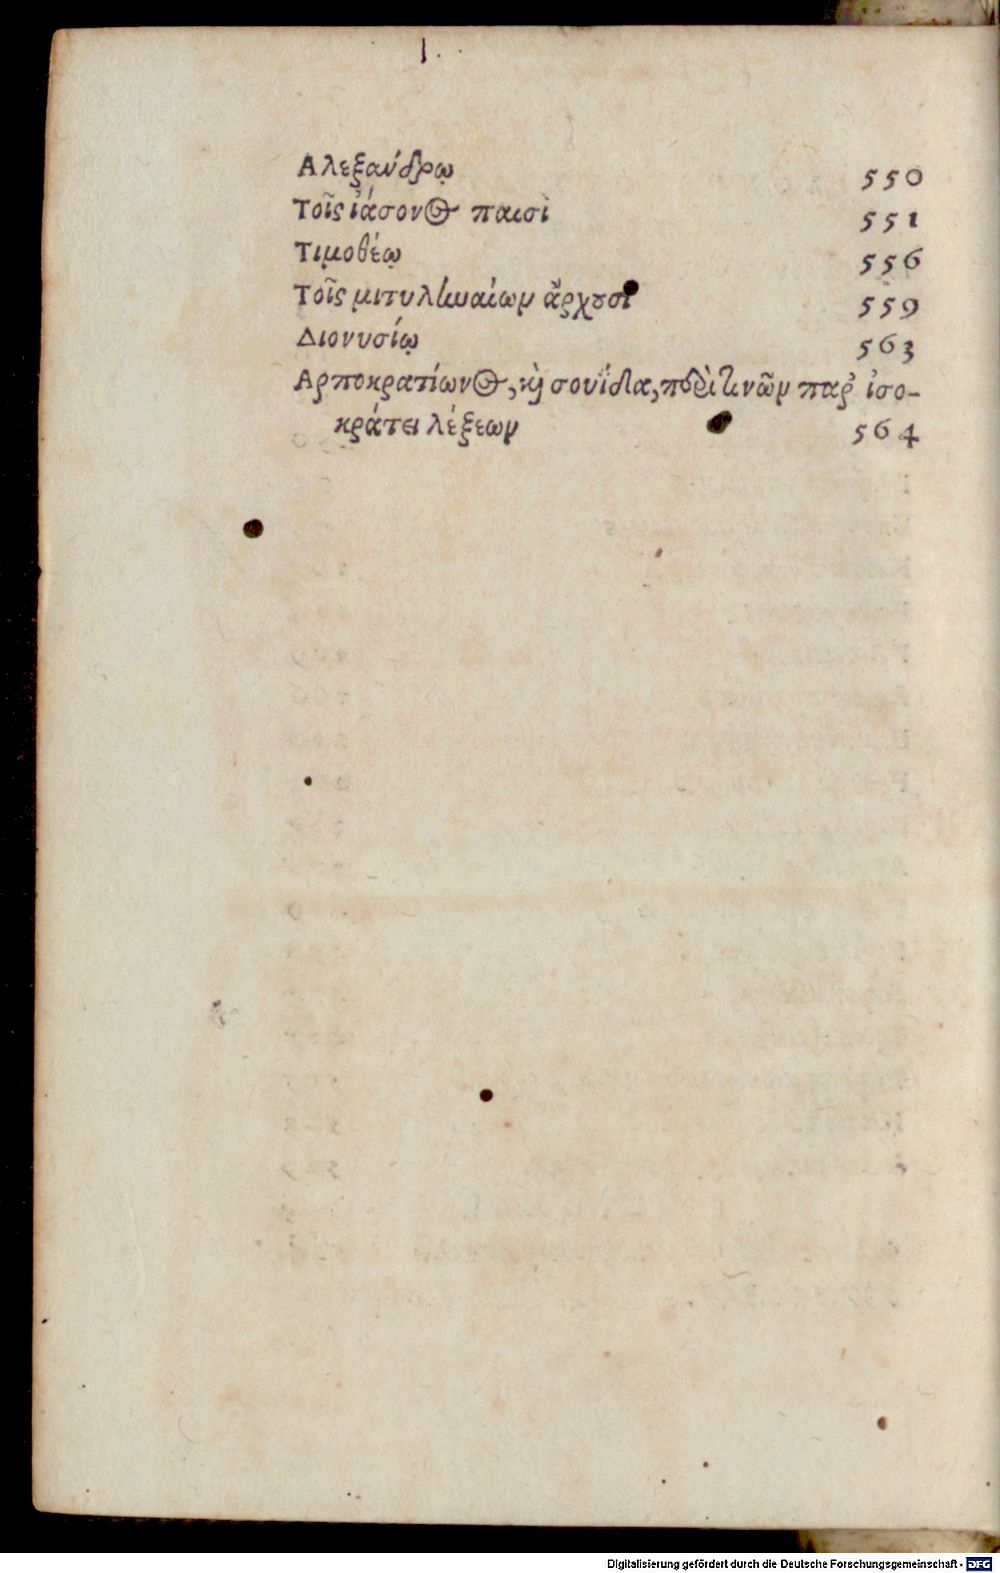 Αλεξάνδρῳ 550
Τοῖς ἰάσονος παισὶ 551
Τιμοθέῳ 556
Τοῖς μιτυληναίων ἄρχουσι 559
Διονυσίῳ 563
Αρποκρατίωνος, καὶ σουΐδα, περὶ τινῶν παρ᾽ ἰσο-
κράτει λέξεων 564
Digitalisierung gefördert durch die Deutsche Forschungsgemeinschaft - DFG